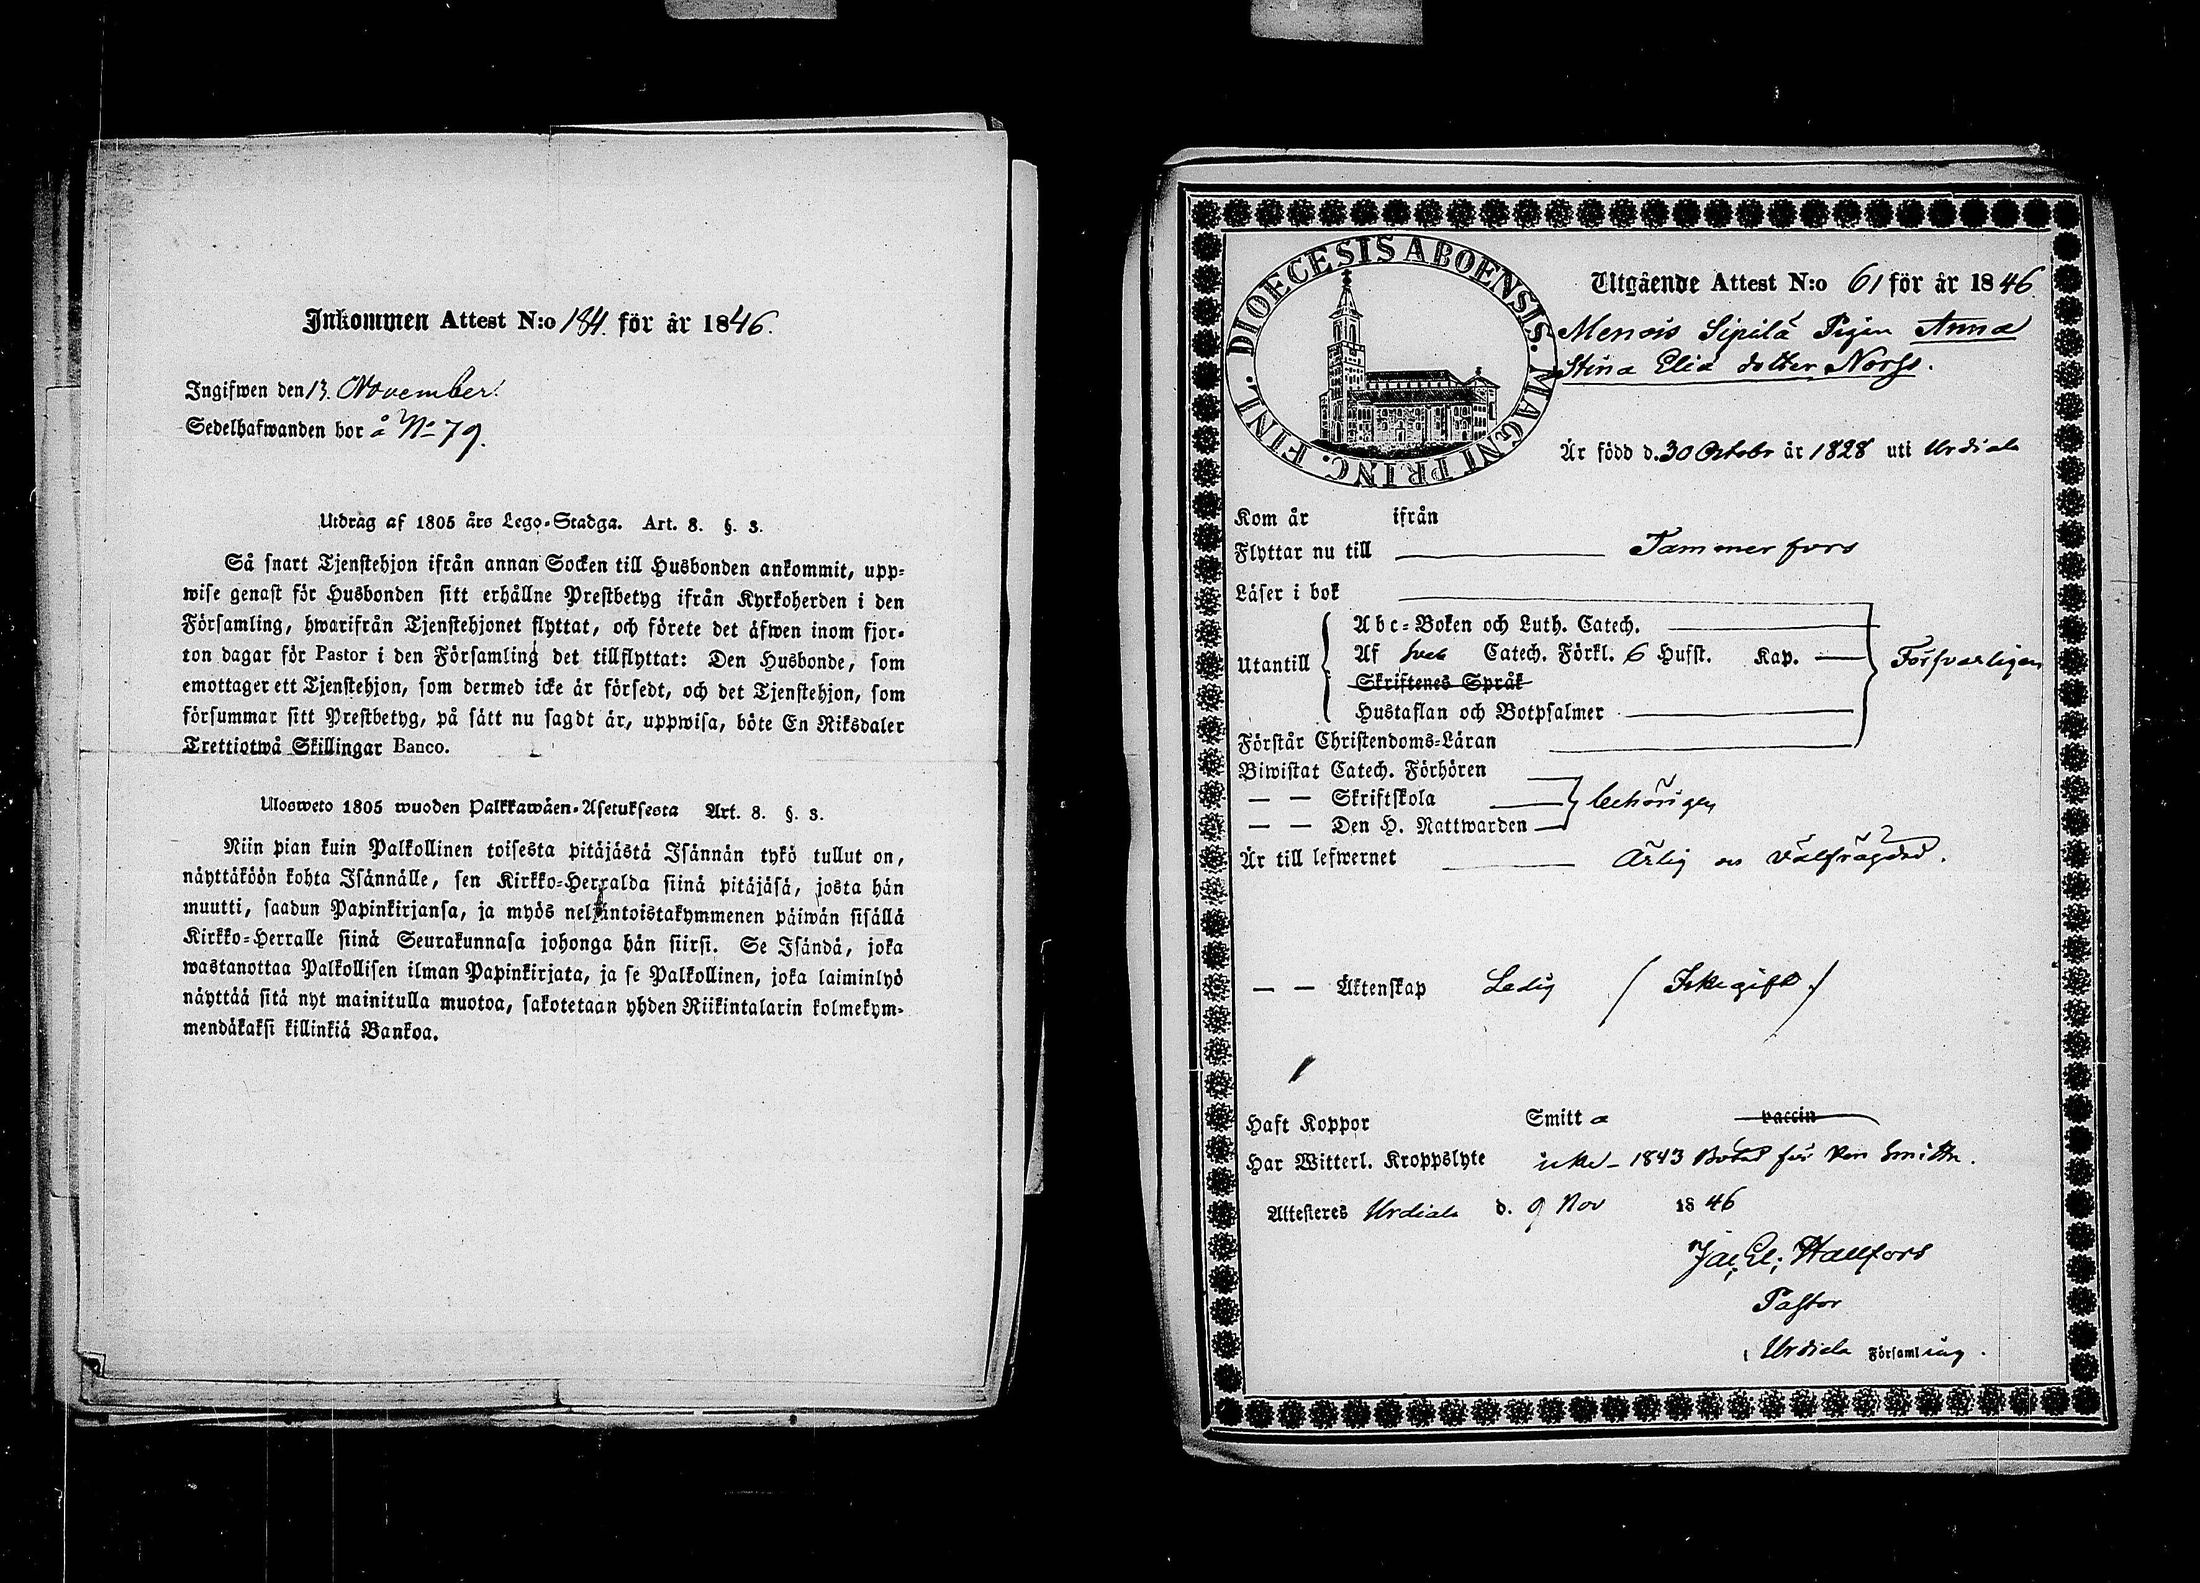 Inkommen Attest N:o 184. för år 1846.
Ingifwen den 13. November.
Sedelhafwanden bor å No 79.
Utdrag af 1805 års Lego-Stadga. Art. 8. §. 3.
Så snart Tjenstehjon ifrån annan Socken till Husbonden ankommit, upp-
wise genast för Husbonden sitt erhållne Prestbetyg ifrån Kyrkoherden i den
Församling, hwarifrån Tjenstehjonet flyttat, och förete det äfwen inom fjor-
ton dagar för Pastor i den Församling det tillflyttat: Den Husbonde, som
emottager ett Tjenstehjon, som dermed icke är försedt, och det Tjenstehjon, som
försummar sitt Prestbetyg, på sätt nu sagdt är, uppwisa, böte En Riksdaler
Trettiotwå Skillingar Banco.
Ulosweto 1805 wuoden Palkkawäen-Asetuksesta Art. 8. §. 3.
Niin pian kuin Palkollinen toisesta pitäjästä Isännän tykö tullut on,
näyttäköön kohta Isännälle, sen Kirkko-Herralda siinä pitäjäsä, josta hän
muutti, saadun Papinkirjansa, ja myös neljäntoistakymmenen päiwän sisällä
Kirkko-Herralle siinä Seurakunnasa johonga hän siirsi. Se Isändä, joka
wastanottaa Palkollisen ilman Papinkirjata, ja se Palkollinen, joka laiminlyö
näyttää sitä nyt mainitulla muotoa, sakotetaan yhden Riikintalarin kolmekym-
mendäkaksi killinkiä Bankoa.
DIOECESIS ABOENSIS. MAGNI PRINC. FINL.
Utgående Attest N:o 61 för år 1846
Menois Sipilä Pigan Anna
Stina Elia dotter Norss.
Är född d. 30 Octobr år 1828 uti Urdiala
Kom år ifrån
Flyttar nu till Tammerfors
Läser i bok
Abc-Boken och Luth. Catech.
Utantill Af Sveb Catech. Förkl. 6 Hufst. Kap. Försvarligen
Skriftenes Språk
Hustaflan och Botpsalmer
Förstår Christendoms-Läran
Biwistat Catech. Förhören
— — Skriftskola behörigen
— — Den H. Nattwarden
Är till lefwernet Ärlig och välfrägdad.
— — Äktenskap Ledig (Icke gift)
Haft Koppor Smitta vaccin
Har Witterl. Kroppslyte icke - 1843 Botad från Ven Smitta.
Attesteres Urdiala d. 9 Nov 1846
Jac. El; Hallfors
Pastor
i Urdiala Församling.